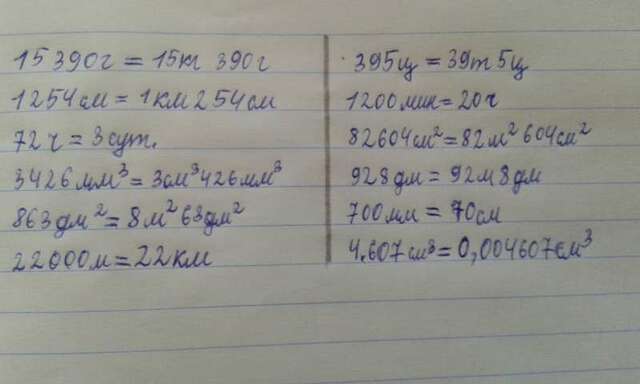 15 390г = 15кг 390г
1254см = 1км 254см
72ч = 3сут.
3426мм³ = 3см³ 426мм³
863дм² = 8м² 63дм²
22000м = 22км
395ц = 39т 5ц
1200мин = 20ч
82604см² = 82м² 604см²
928дм = 92м 8дм
700мм = 70см
4.607см³ = 0,004607см³